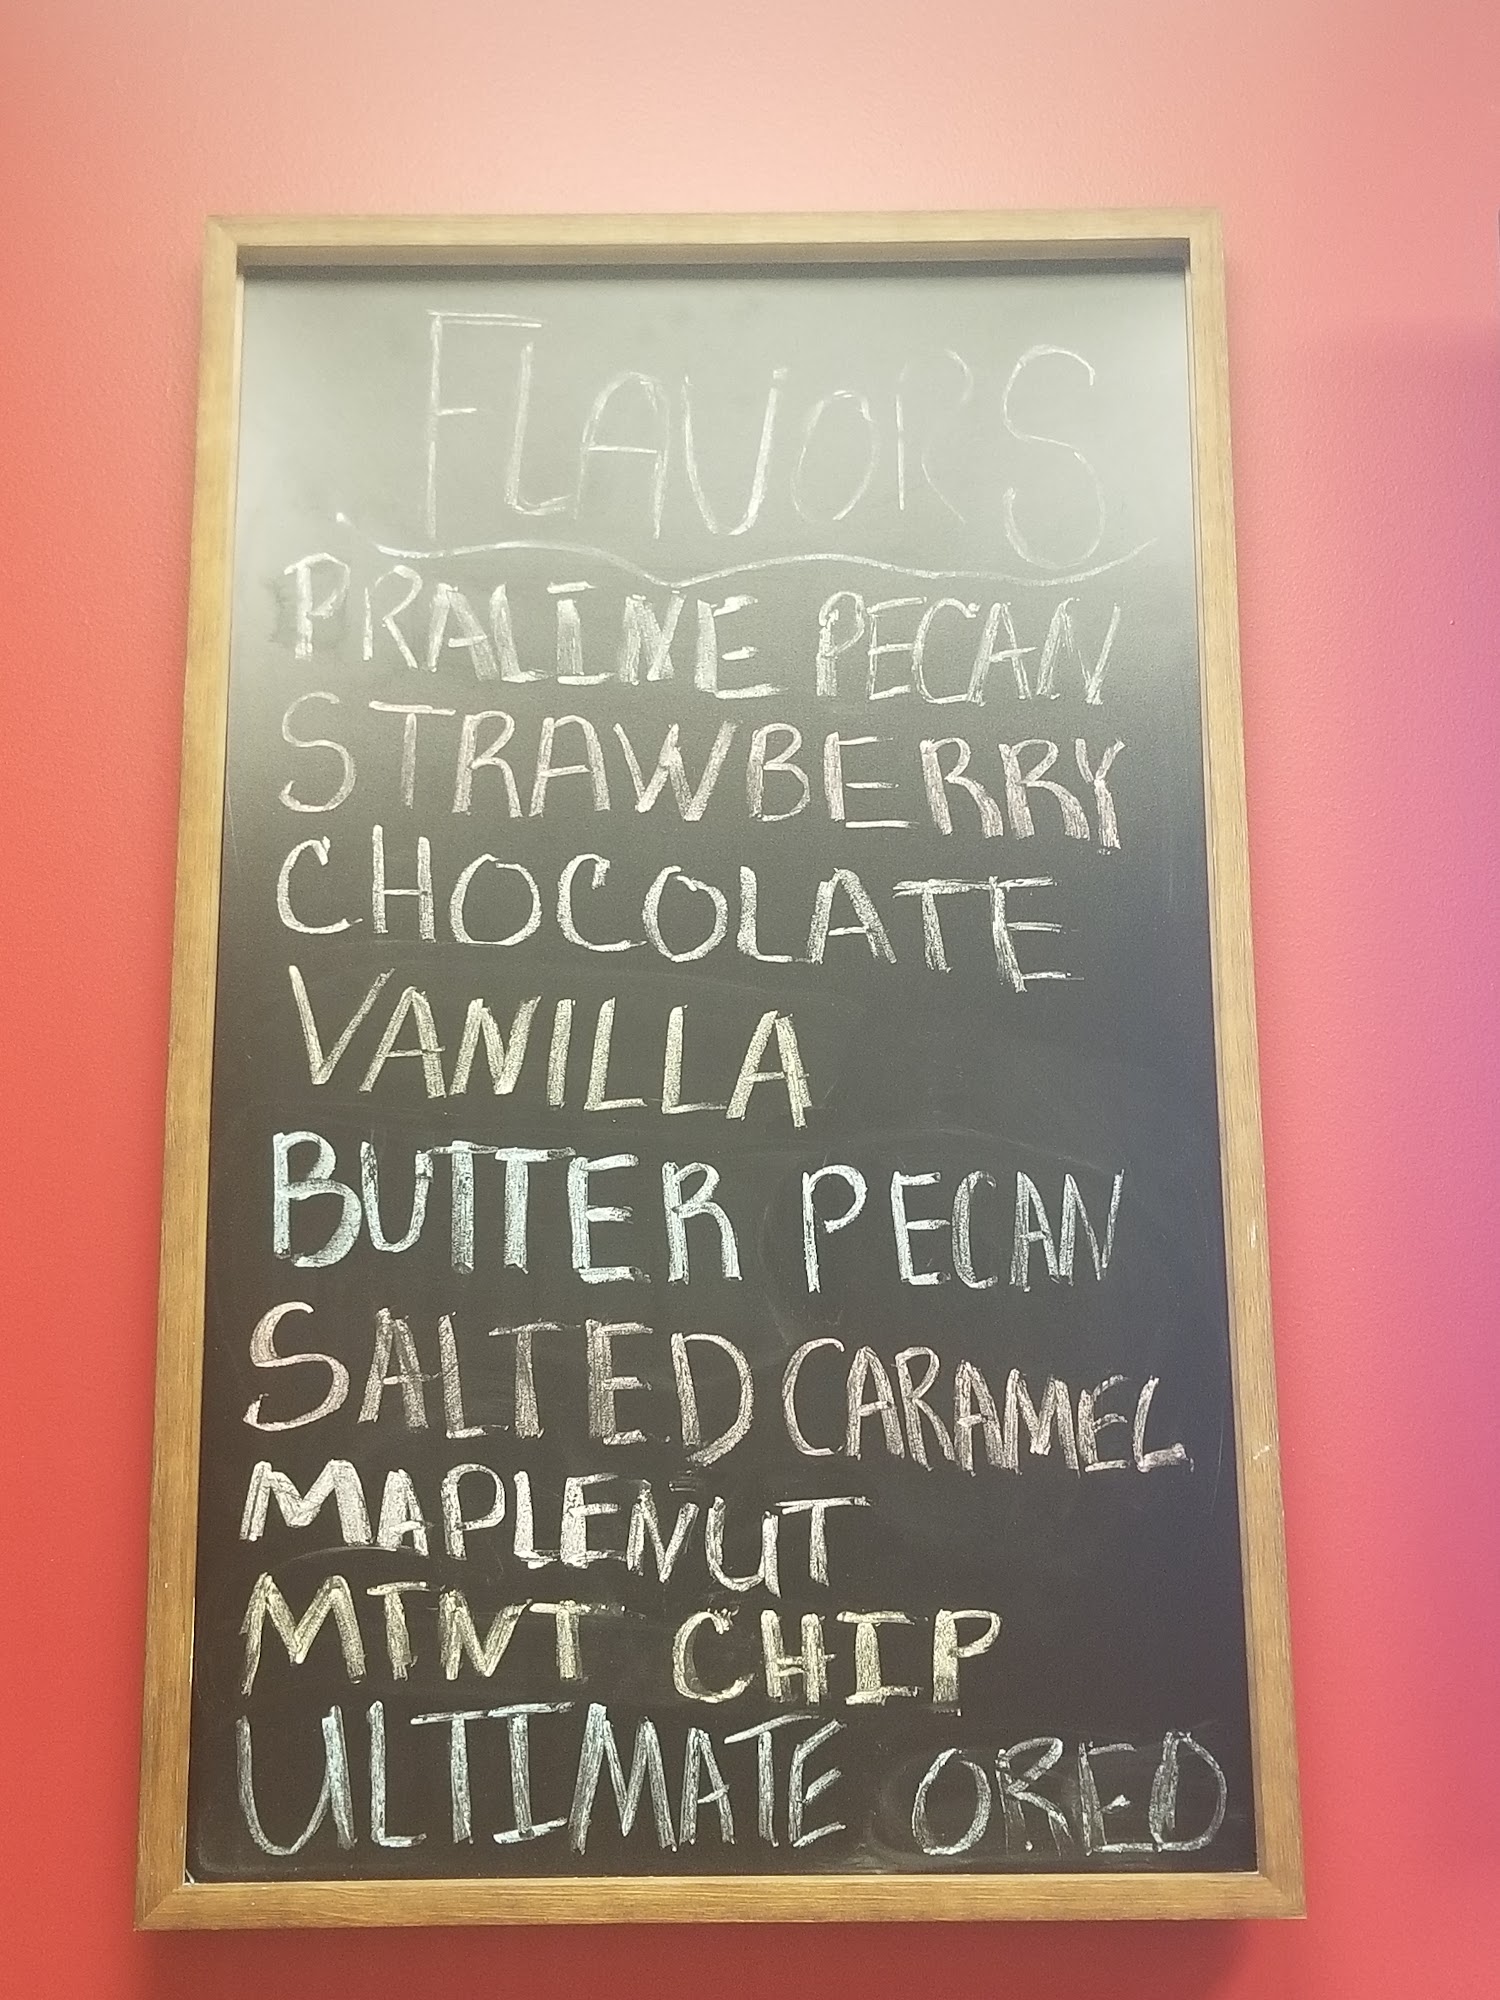 FLAVORS
PRALINE PECAN
STRAWBERRY
CHOCOLATE
VANILLA
BUTTER PECAN
SALTED CARAMEL
MAPLENUT
MINT CHIP
ULTIMATE OREO